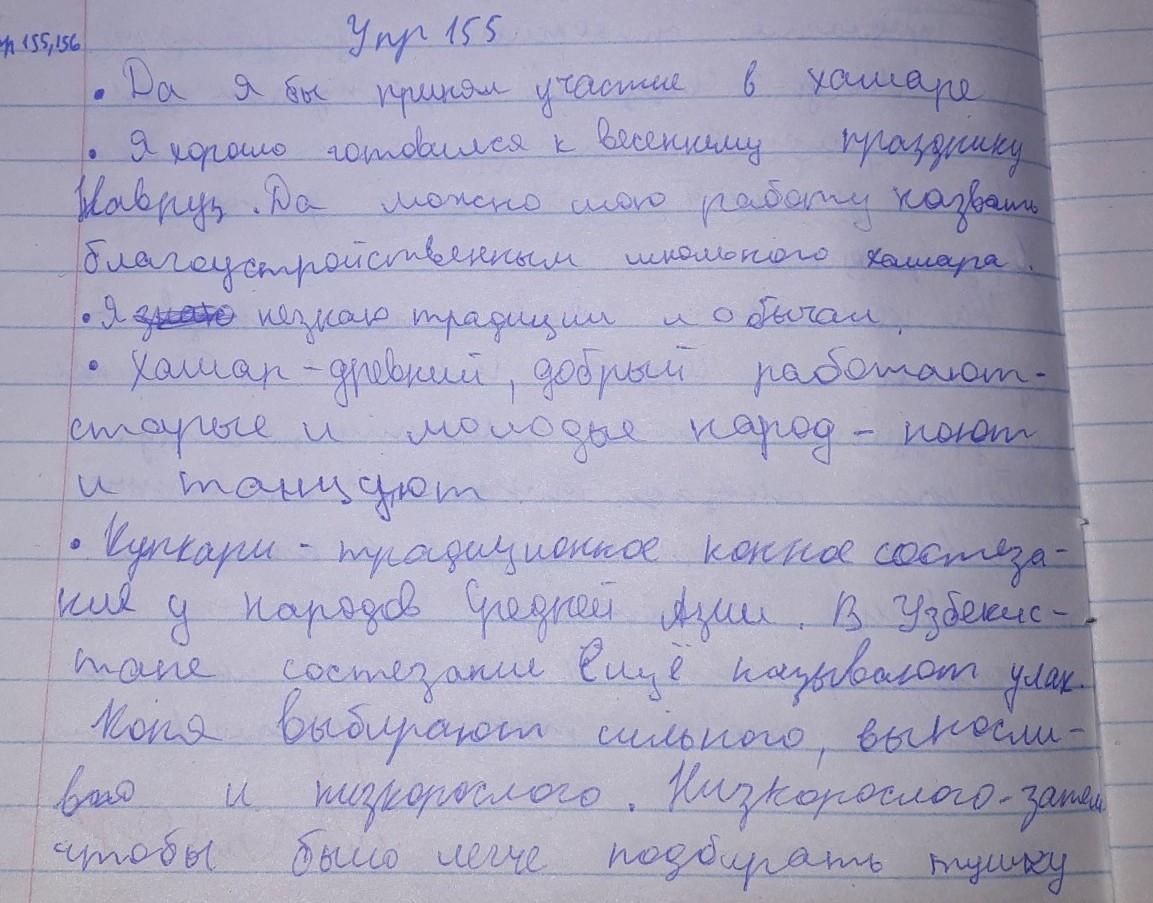 Упр 155
р 155,156
• Да я бы принял участие в хашаре
• Я хорошо готовился к весеннему празднику
Навруз. Да можно мою работу назвать
благоустройственным школьного хашара.
• Я знаю незнаю традиции и обычаи.
• Хашар - древний, добрый работают-
старые и молодые народ - поют
и танцуют
• Купкари - традиционное конное состеза-
ние у народов Средней Азии. В Узбекис-
тане состезание Ещё называют улак.
Коня выбирают сильного, выносли-
вого и низкорослого. Низкорослого-затем
чтобы было легче подбирать тушку